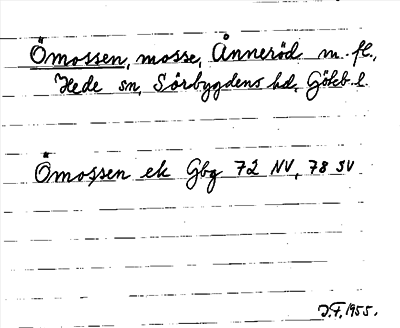 Ömossen, mosse, Ånneröd m. fl.,
Hede sn, Sörbygdens hd, Göteb. l.
Ömossen ek Gbg 72 NV, 78 SV
J.F. 1955.